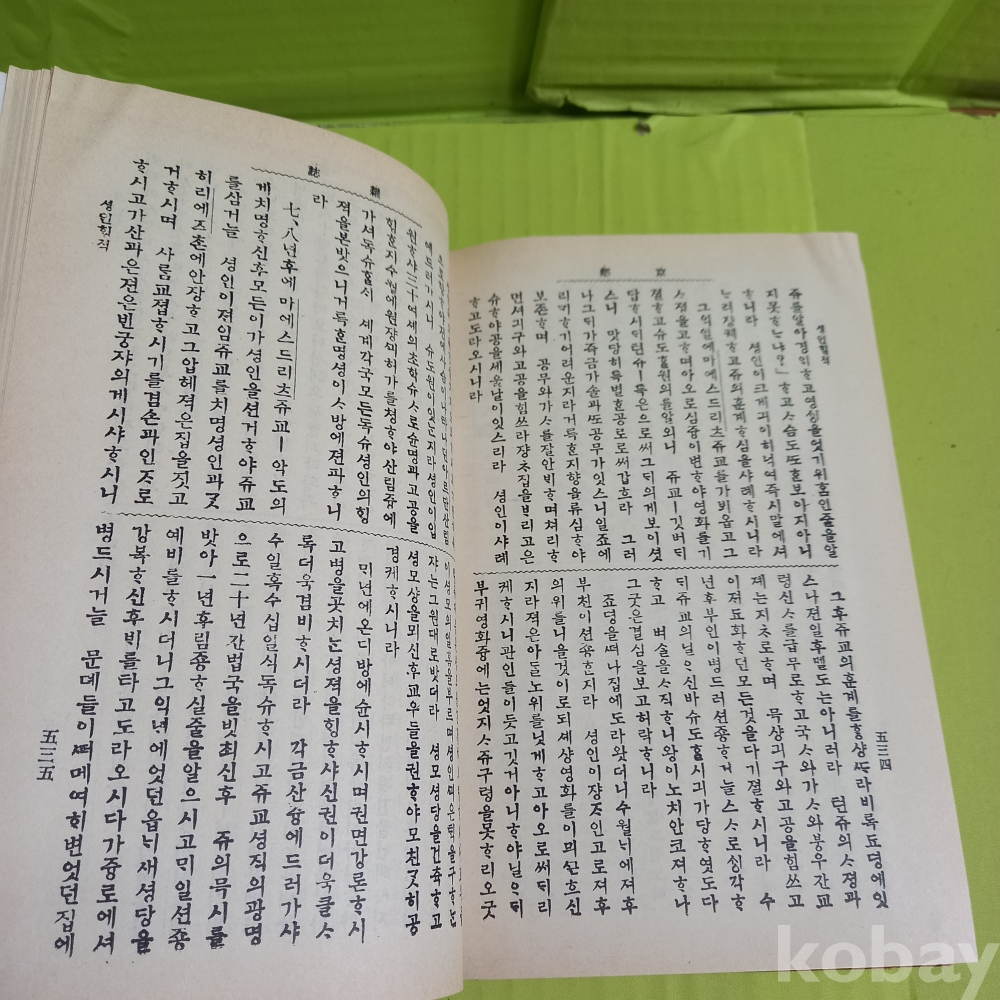 京鄕
셩인힝젹
쥬를알아경외ᄒᆞ고영싱을엇기위홈인줄을알
지못ᄒᆞᄂᆞ냐?」ᄒᆞ고ᄉᆞ슴도ᄯᅩ호보아지아니
ᄒᆞ니라 셩인이크게긔이히넉여즉시말에셔
ᄂᆞ려쟝궤ᄒᆞ고쥬의훈계ᄒᆞ심을샤례ᄒᆞ시니라
그익일에마에스드리츠쥬교를가뵈옵고그
ᄉᆞ졍을고ᄒᆞ며아오로심즁이변ᄒᆞ야영화를기
결ᄒᆞ고슈도홀원의를알외니 쥬교ㅣ깃버되
답ᄒᆞ시되텬쥬ㅣ특은으로써그듸의게보이셧
스니 맛당히특별호공로로써갑흐라 그러
나그듸가쥬금가솔과ᄯᅩ공무가잇스니일죠에
리ᄒᆞ기어려운지라거룩호지향을류심ᄒᆞ야
보존ᄒᆞ며 공무와가ᄉᆞ를잘안비ᄒᆞ며쳐리ᄒᆞ
면셔긔구와고공을힘쓰라쟝ᄎᆞ집을ᄇᆞ리고은
슈ᄒᆞ야공을세울날이잇스리라 셩인이샤례
ᄒᆞ고도라오시니라
그후쥬교의훈계를ᄒᆞᆼ샹ᄯᅡ라비록됴뎡에잇
스나젼일후뎰도는아니러라 텬쥬의ᄉᆞ졍과
령신ᄉᆞ를급무로ᄒᆞ고국ᄉᆞ와가ᄉᆞ와붕우간교
졔는지ᄎᆞ로ᄒᆞ며 묵샹긔구와고공을힘쓰고
이젼됴화ᄒᆞ던모든것을다기결ᄒᆞ시니라 수
년후부인이병드러션죵ᄒᆞ거늘스ᄉᆞ로싱각ᄒᆞ
되쥬교의닐ᄋᆞ신바슈도홀시긔가당ᄒᆞ엿도다
ᄒᆞ고 벼슬을ᄉᆞ직ᄒᆞ니왕이노치안코져ᄒᆞ나
그굿은결심을보고허락ᄒᆞ니라
죠뎡을ᄯᅥ나집에도라왓더니수월ᄂᆡ에져후
부친이션죵ᄒᆞ지라 셩인이쟝ᄌᆞ인고로져후
의위를니을것이로되셰샹영화를이믜ᄭᅳᆫᄒᆞ신
지라져은아들노위를닛게ᄒᆞ고아오로써되리
케ᄒᆞ시니관인들이듯고깃거아니ᄒᆞ야닐ᄋᆞ되
부귀영화즁에는엇지ᄉᆞ쥬구령을못ᄒᆞ리오굿
五三四
雜誌
에드러가시니 슈도원이잇는지라셩인이입
원ᄒᆞ샤三十여셰의초학슈ᄉᆞ로슌명과고공을
힘호지수월에원쟝ᄭᅴ허가를쳥ᄒᆞ야산림즁에
가셔독슈홀ᄉᆡ 셰계각국모든독슈셩인의힝
젹을본밧으니거룩호명셩이ᄉᆞ방에젼파ᄒᆞ니
라
七、八년후에마에스드리츠쥬교ㅣ악도의
게치명ᄒᆞ신후모든이가셩인을션거ᄒᆞ야쥬교
를삼거늘 셩인이젼임쥬교를치명셩인과ᄀᆞᆺ
히리에즈촌에안쟝ᄒᆞ고그압헤젹은집을짓고
거ᄒᆞ시며 사ᄅᆞᆷ교졉ᄒᆞ시기를겸손과인ᄌᆞ로
ᄒᆞ시고가산과은젼은빈궁쟈의게시샤ᄒᆞ시니
셩인힝젹
쟈는그원대로밧더라 셩모셩당을건츅ᄒᆞ고
셩모샹을뫼신후교우들을권ᄒᆞ야모친ᄀᆞᆺ히공
경케ᄒᆞ시니라
ᄆᆡ년에온디방에슌시ᄒᆞ시며권면강론ᄒᆞ시
고병을곳치는셩젹을힝ᄒᆞ샤신권이더욱클ᄉᆞ
록더욱겸비ᄒᆞ시더라 각금산즁에드러가샤
수일혹수십일식독슈ᄒᆞ시고쥬교셩직의광명
으로二十년간법국을빗최신후 쥬의믁시를
밧아一년후림죵ᄒᆞ실줄을알으시고ᄆᆡ일션죵
예비를ᄒᆞ시더니그ᄒᆡ년에엇던읍ᄂᆡ새셩당을
강복ᄒᆞ신후ᄇᆡ를타고도라오시다가즁로에셔
병드시거늘 문뎨들이ᄯᅥ메여ᄒᆡ변엇던집에
五三五
kobay